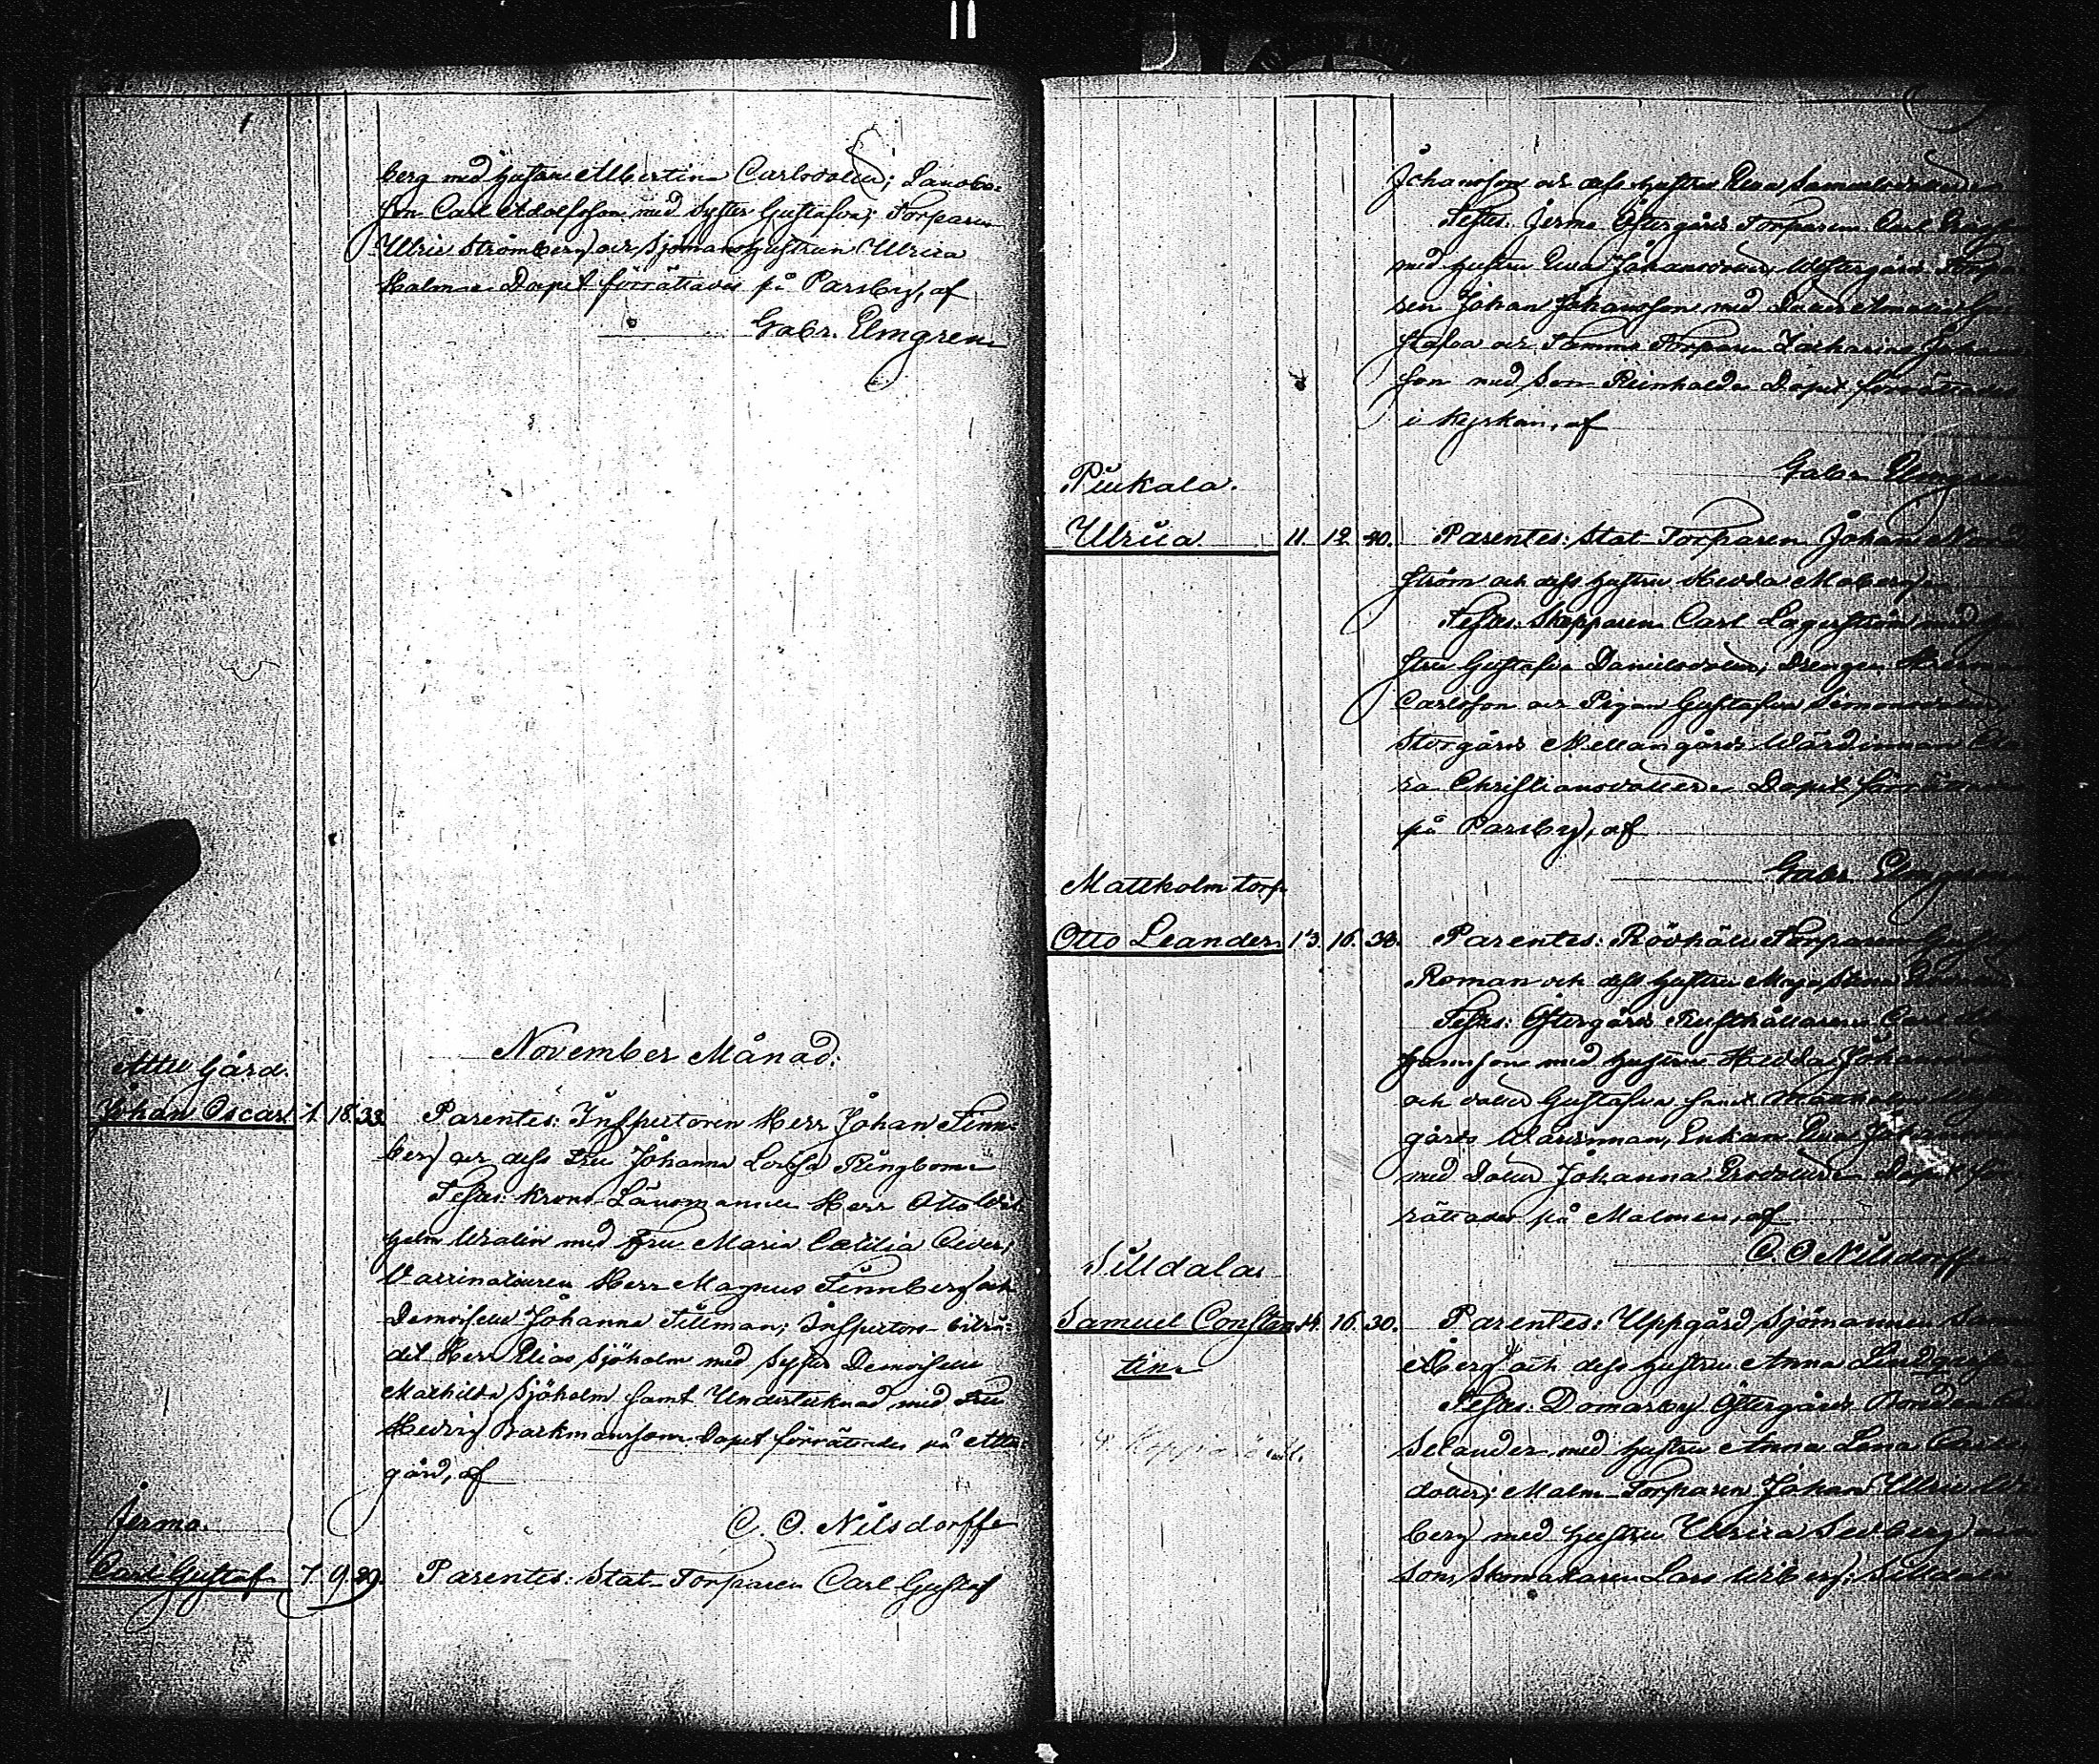 berg med hustru Albertina Carlsdotter; Landbo-
son Carl Adolfsson med syster Gustafva; Torparen
Ulric Strömberg och Sjömanshustrun Ulrica
Holm. Dopet förrättades på Parsby, af
Gabr. Elmgren
November Månad.
Attu Gård.
Johan Oscar. 1. 18. 33. Parentes: Inspectoren Herr Johan Finn-
berg och dess Fru Johanna Lovisa Ringbom
Testes: Krono-Länsmannen Herr Otto Wil-
helm Walin med Fru Maria Cæcilia
Vaccinateuren Herr Magnus Finnberg och
Demoiselle Johanna Tillman; Inspectors-biträ-
det Herr Elias Sjöholm med Syster Demoiselle
Mathilda Sjöholm samt Undertecknad med Fru
Hedvig Barkmansson. Dopet förrättades på Attu
gård, af
C. O. Nilsdorff
Jermo.
Carl Gustaf 7. 9. 29. Parentes: Stat-Torparen Carl Gustaf
Johansson och dess hustru Eva Samuelsdotter
Testes: Jermo Östergårds Torparen Carl
med hustru Eva Johansdotter, Westergårds Torpa-
ren Johan Johansson med Dotter Amalia Gu-
stafva och Torparen Zacharias Johans-
son med Son Reinhold. Dopet förrättades
i kyrkan, af
Gabr. Elmgren
Piukala.
Ulrica 11. 12. 20. Parentes: Stat-Torparen Johan Nord-
ström och dess hustru Hedda Moberg
Testes: Skepparen Carl Lagerström med hu-
stru Gustafva Danielsdotter, Drengen
Carlsson och Pigan Gustafva Simonsdotter,
Storgårds Mellangårds Wärdinnan
Christiansdotter. Dopet förrättades
på Parsby, af
Gabr. Elmgren
Mattholm torp
Otto Leander 13. 16. 38. Parentes: Torparen
Roman och dess hustru Maja Stina
Testes: Östergårds Rusthållaren Carl
med hustru Hedda Johansdotter
och dotter Gustafva samt
gårds Wärdinnan, Enkan Eva
med Dotter Johanna Dopet för-
rättades på Malmen, af
C. O. Nilsdorff
Silldala
Samuel Constan- 14. 16. 30. Parentes: Uppgård Sjömannen
tin
berg och dess hustru Anna Lindqvist
Testes: Domarby Östergårds Bonden
Selander med hustru Anna Lena Carls-
dotter; Malm-Torparen Johan Ulric
berg med hustru Ulrica Sedberg
Son, Skomakaren Lars Wiberg; Silldala